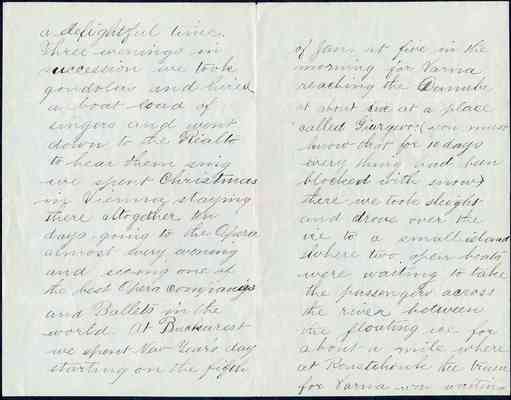 a delightful time.
Three evenings in
succession we took
gondolas and hired
a boat load of
singers and went
down to the Rialto
to hear them sing
we spent Christmas
in Vienna, staying
there altogether ten
days going to the Opera
almost every evening
and seeing one of
the best Opera companys
and Ballets in the
world. At Bucharest
we spent New Years day
starting on the fifth
of Jan. at five in the
morning for Varna
reaching the Danube
at about at a place
called Giurgevo: (you must
know that for 10 days
every thing had been
blocked with snow)
there we took sleighs
and drove over the
ice to a small island
where two open boats
were waiting to take
the passengers across
the river between
the floating ice for
about a mile where
at Roustchouk the train
for Varna was waiting